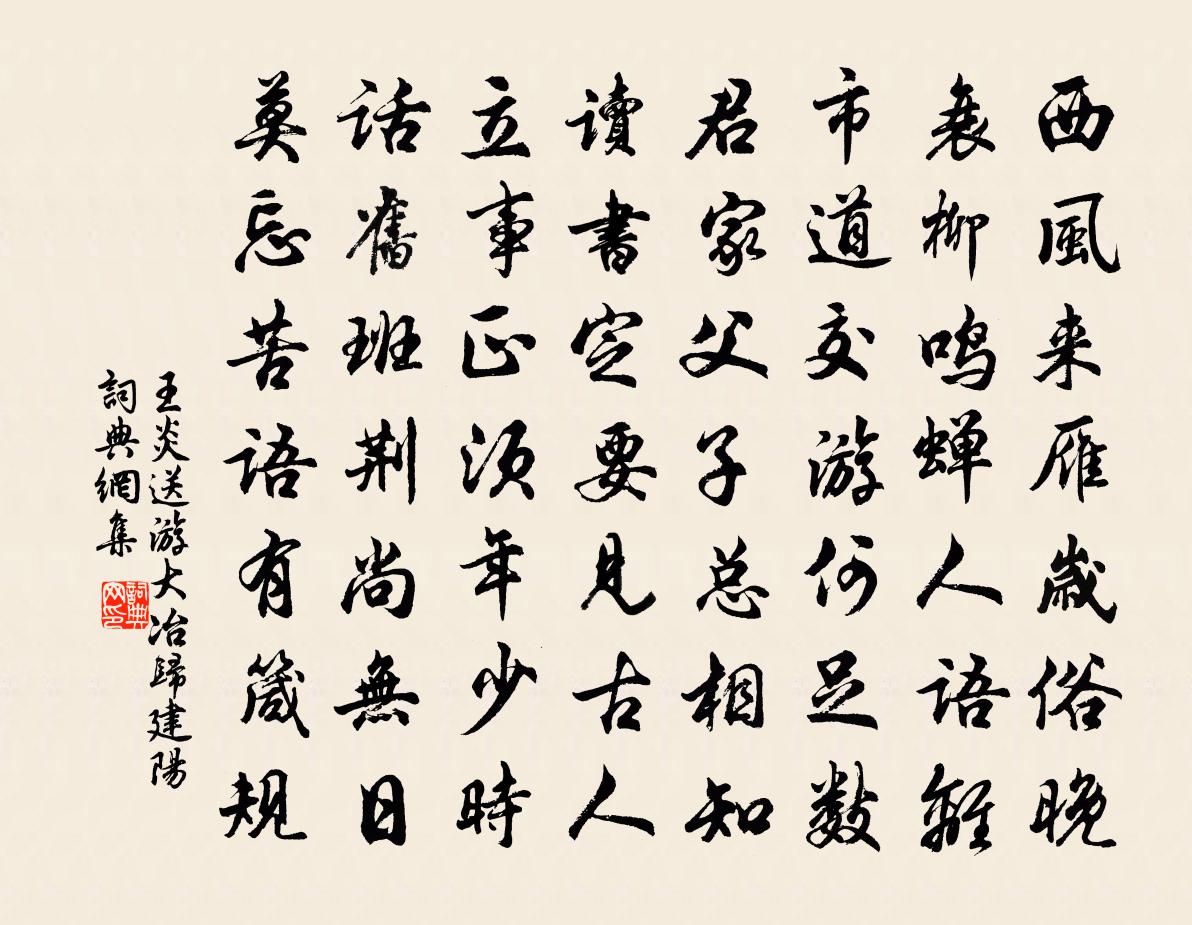 西風来雁歳俗晚
衰柳鳴蟬人語離
市道交游何足數
君家父子总相知
讀書定要見古人
立事正須年少時
話舊班荆尚無日
莫忘苦語有箴規
王炎送游大冶歸建陽
詞典網集
詞典网印